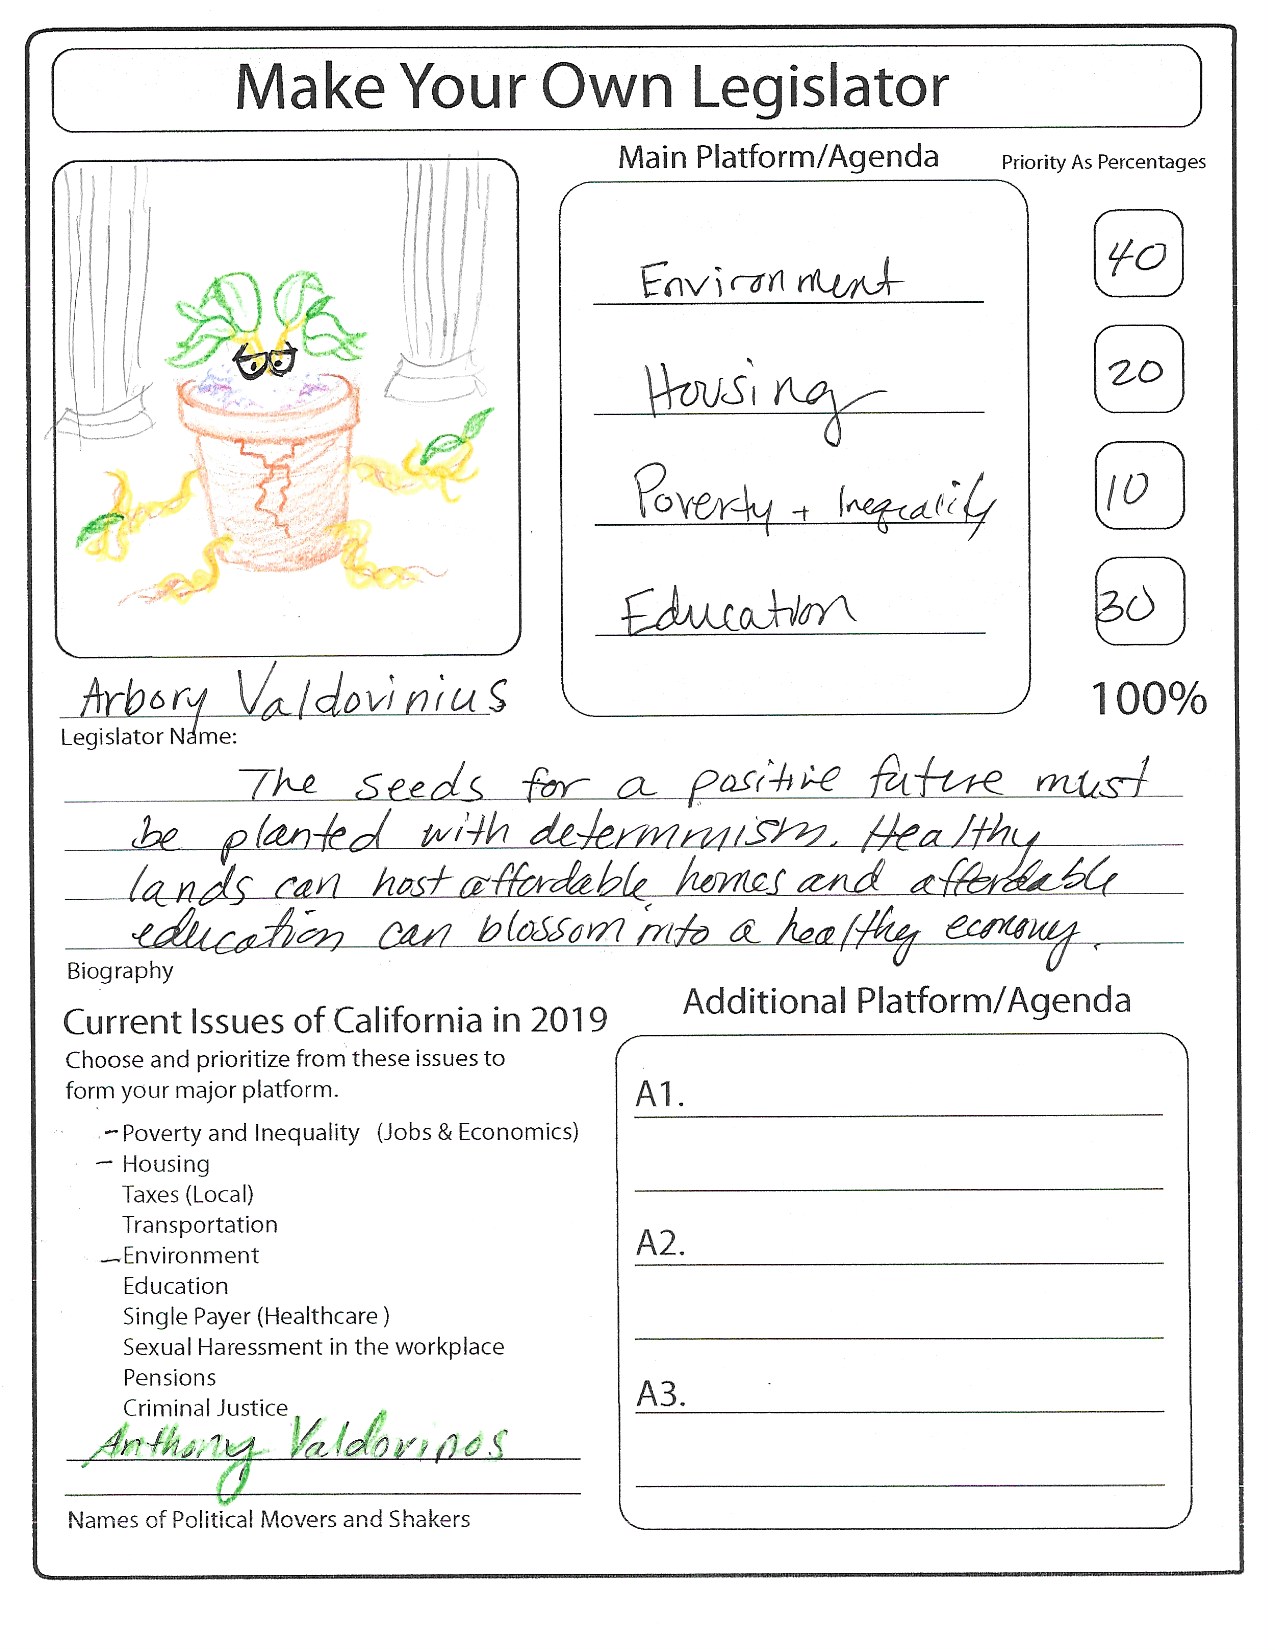 Make Your Own Legislator
Main Platform/Agenda
Priority As Percentages
Environment
40
Housing
20
Poverty + Inequality
10
Education
30
100%
Arbory Valdovinius
Legislator Name:
The seeds for a positive future must
be planted with determinism. Healthy
lands can host affordable homes and affordable
education can blossom into a healthy economy.
Biography
Current Issues of California in 2019
Choose and prioritize from these issues to
form your major platform.
- Poverty and Inequality (Jobs & Economics)
- Housing
Taxes (Local)
Transportation
- Environment
Education
Single Payer (Healthcare )
Sexual Haressment in the workplace
Pensions
Criminal Justice
Anthony Valdovinos
Names of Political Movers and Shakers
Additional Platform/Agenda
A1.
A2.
A3.